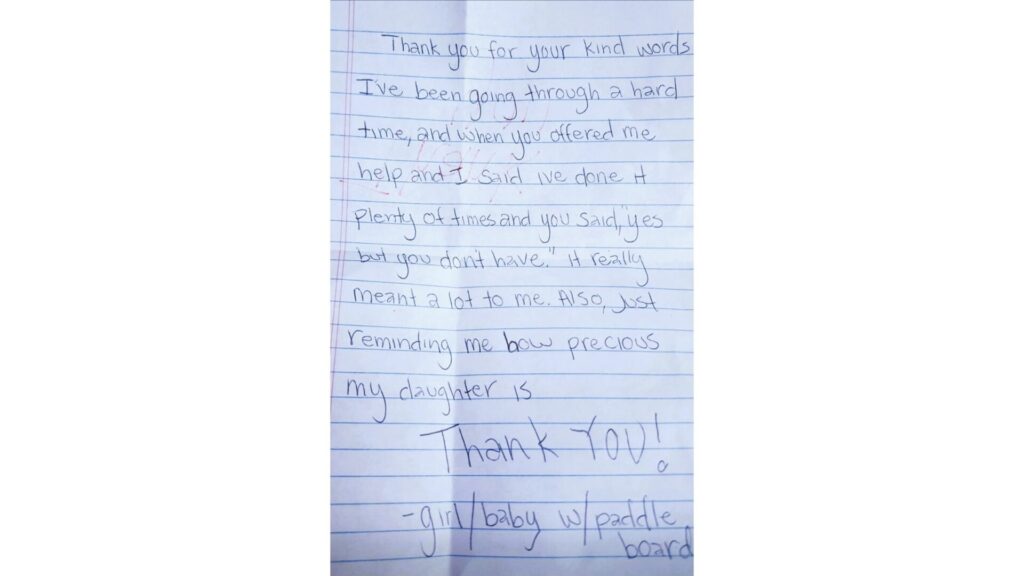 Thank you for your kind words
I've been going through a hard
time, and when you offered me
help and I said ive done it
plenty of times and you said, "yes
but you don't have." it really
meant a lot to me. Also, just
reminding me how precious
my daughter is
Thank YOU!
-girl/baby w/paddle
board